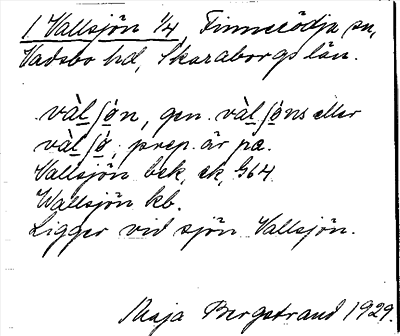 1 Vallsjön 1/4, Finnerödja sn,
Vadsbo hd, Skaraborgs län.
vàl ʃȯn, gen. vàl ʃȯns eller
vàl ʃȯ, prep. är pa.
Vallsjön bek, ek, 564.
Wallsjön kb.
Ligger vid sjön Vallsjön.
Maja Bergstrand 1929.